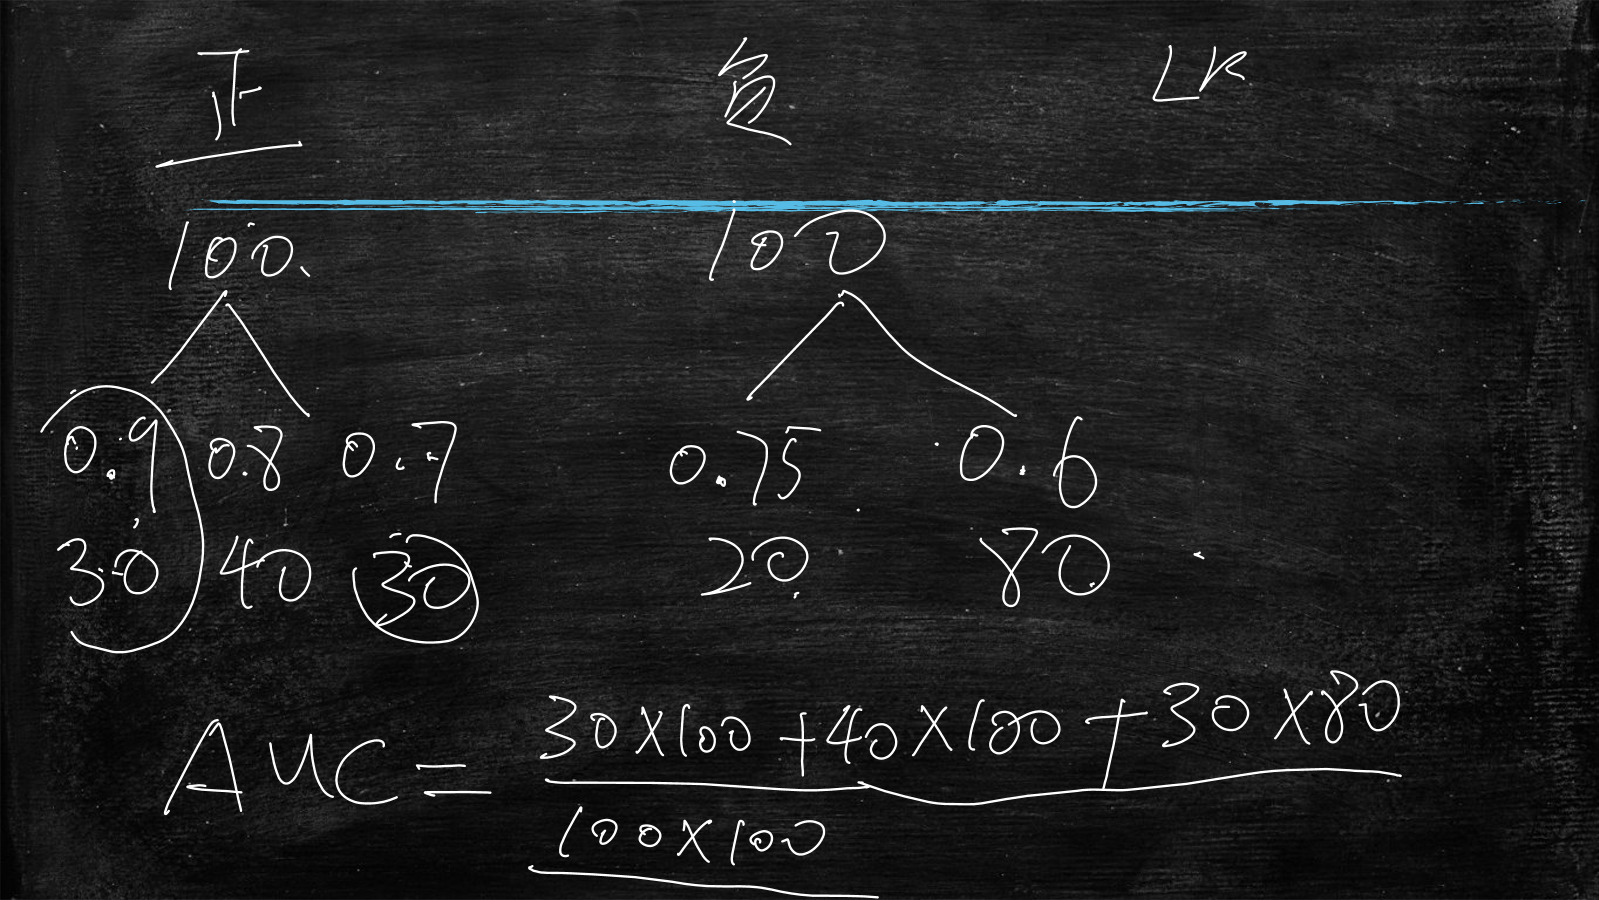 正 负 LR
100. 100
0.9 0.8 0.7 0.75 0.6
30 40 30 20 80
AUC = 30×100 + 40×100 + 30×80
100×100